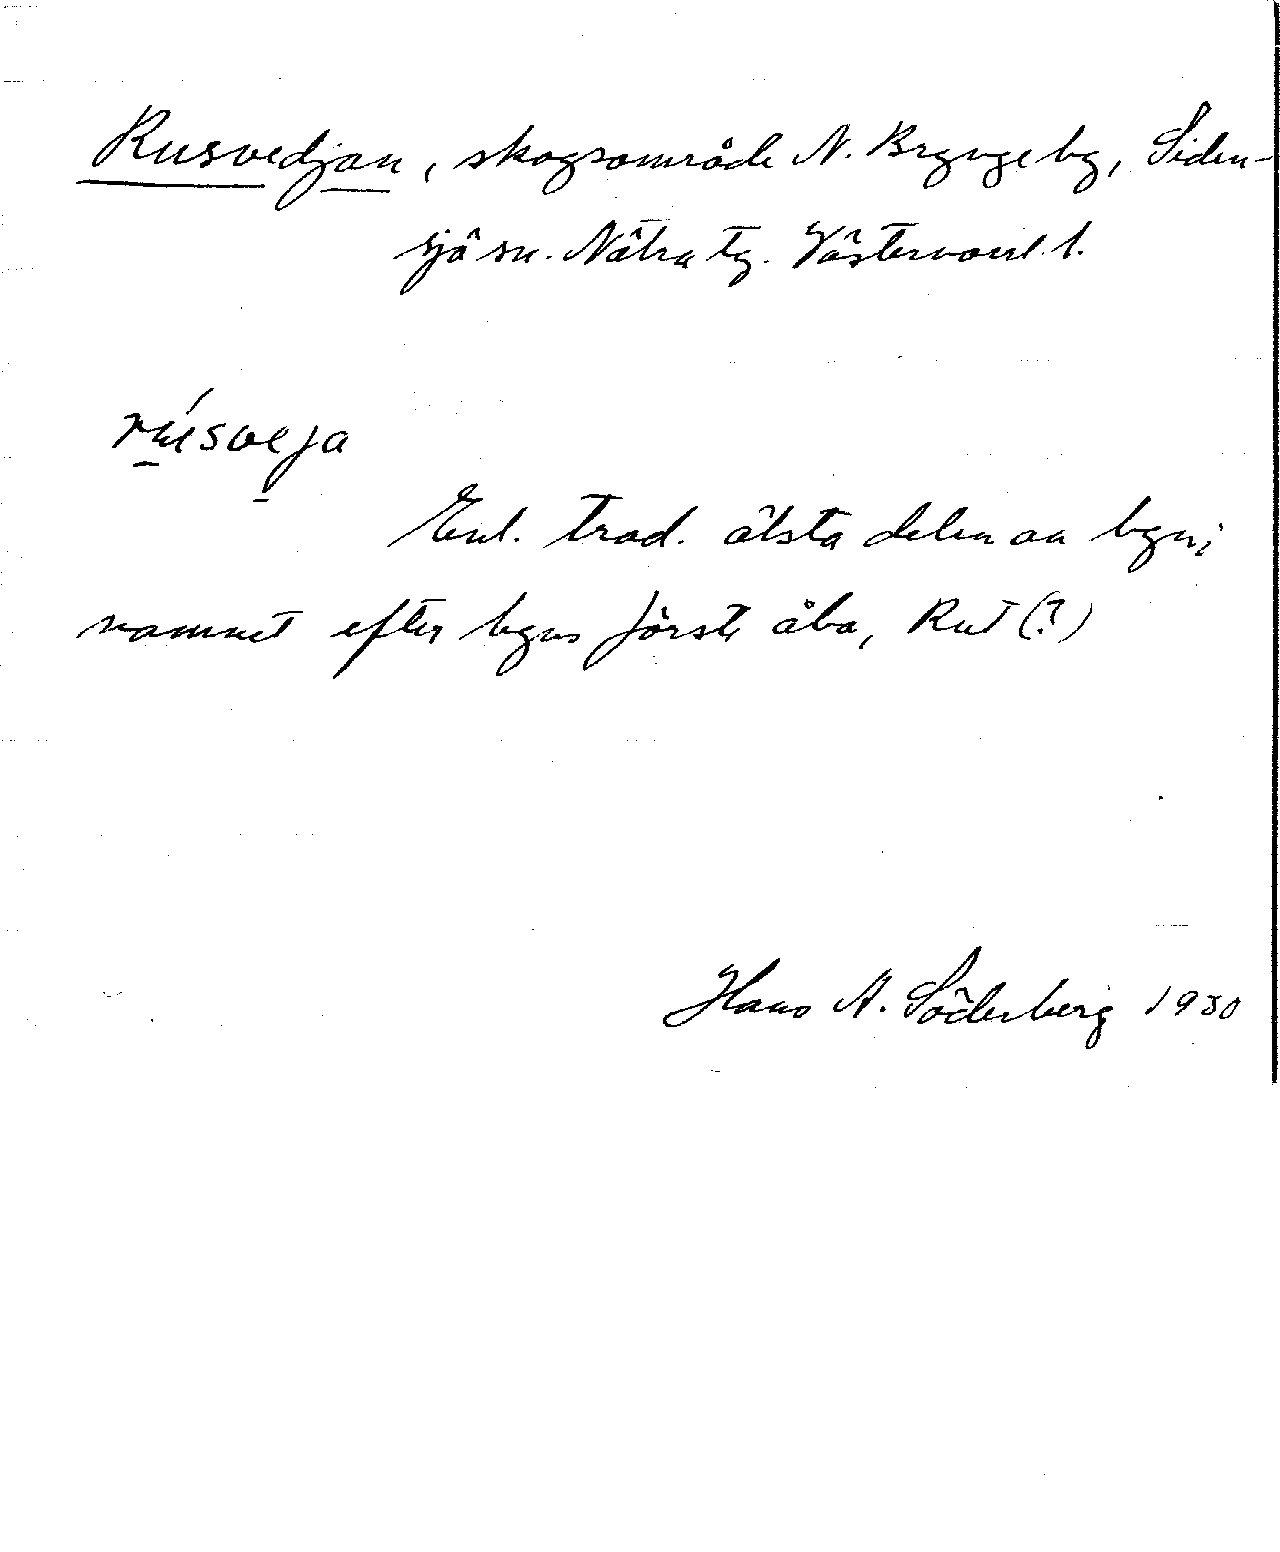 Rusvedjan, skogsområde N. Brynge by, Siden-
sjö sn. Nätra tg. Västernorrl. l.
rúsveja
Enl. trad. älsta delen av byn;
namnet efter byns förste åbo, Rut (?)
Hans A. Söderberg 1930